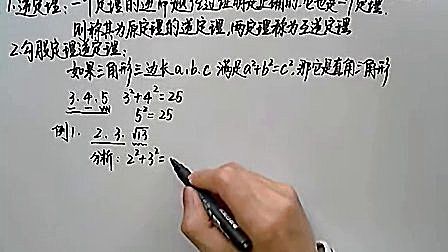 1.逆定理:一个定理的逆命题经过证明是正确的,它也是一个定理.
则称其为原定理的逆定理,两定理称为互逆定理
2.勾股定理逆定理:
如果三角形三边长a、b、c 满足a²+b²=c²,那它是直角三角形
3、4、5 3²+4²=25
5²=25
例1. 2、3、√13
分析:2²+3²=